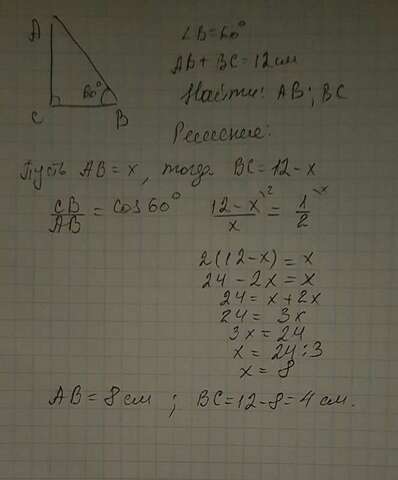 A
60°
C
B
∠B=60°
AB+BC=12см
Найти: AB; BC
Решение:
Пусть AB=x, тогда BC=12-x
CB/AB = cos60°
12-x\2/x = 1\x/2
2(12-x)=x
24-2x=x
24=x+2x
24=3x
3x=24
x=24:3
x=8
AB=8см; BC=12-8=4см.